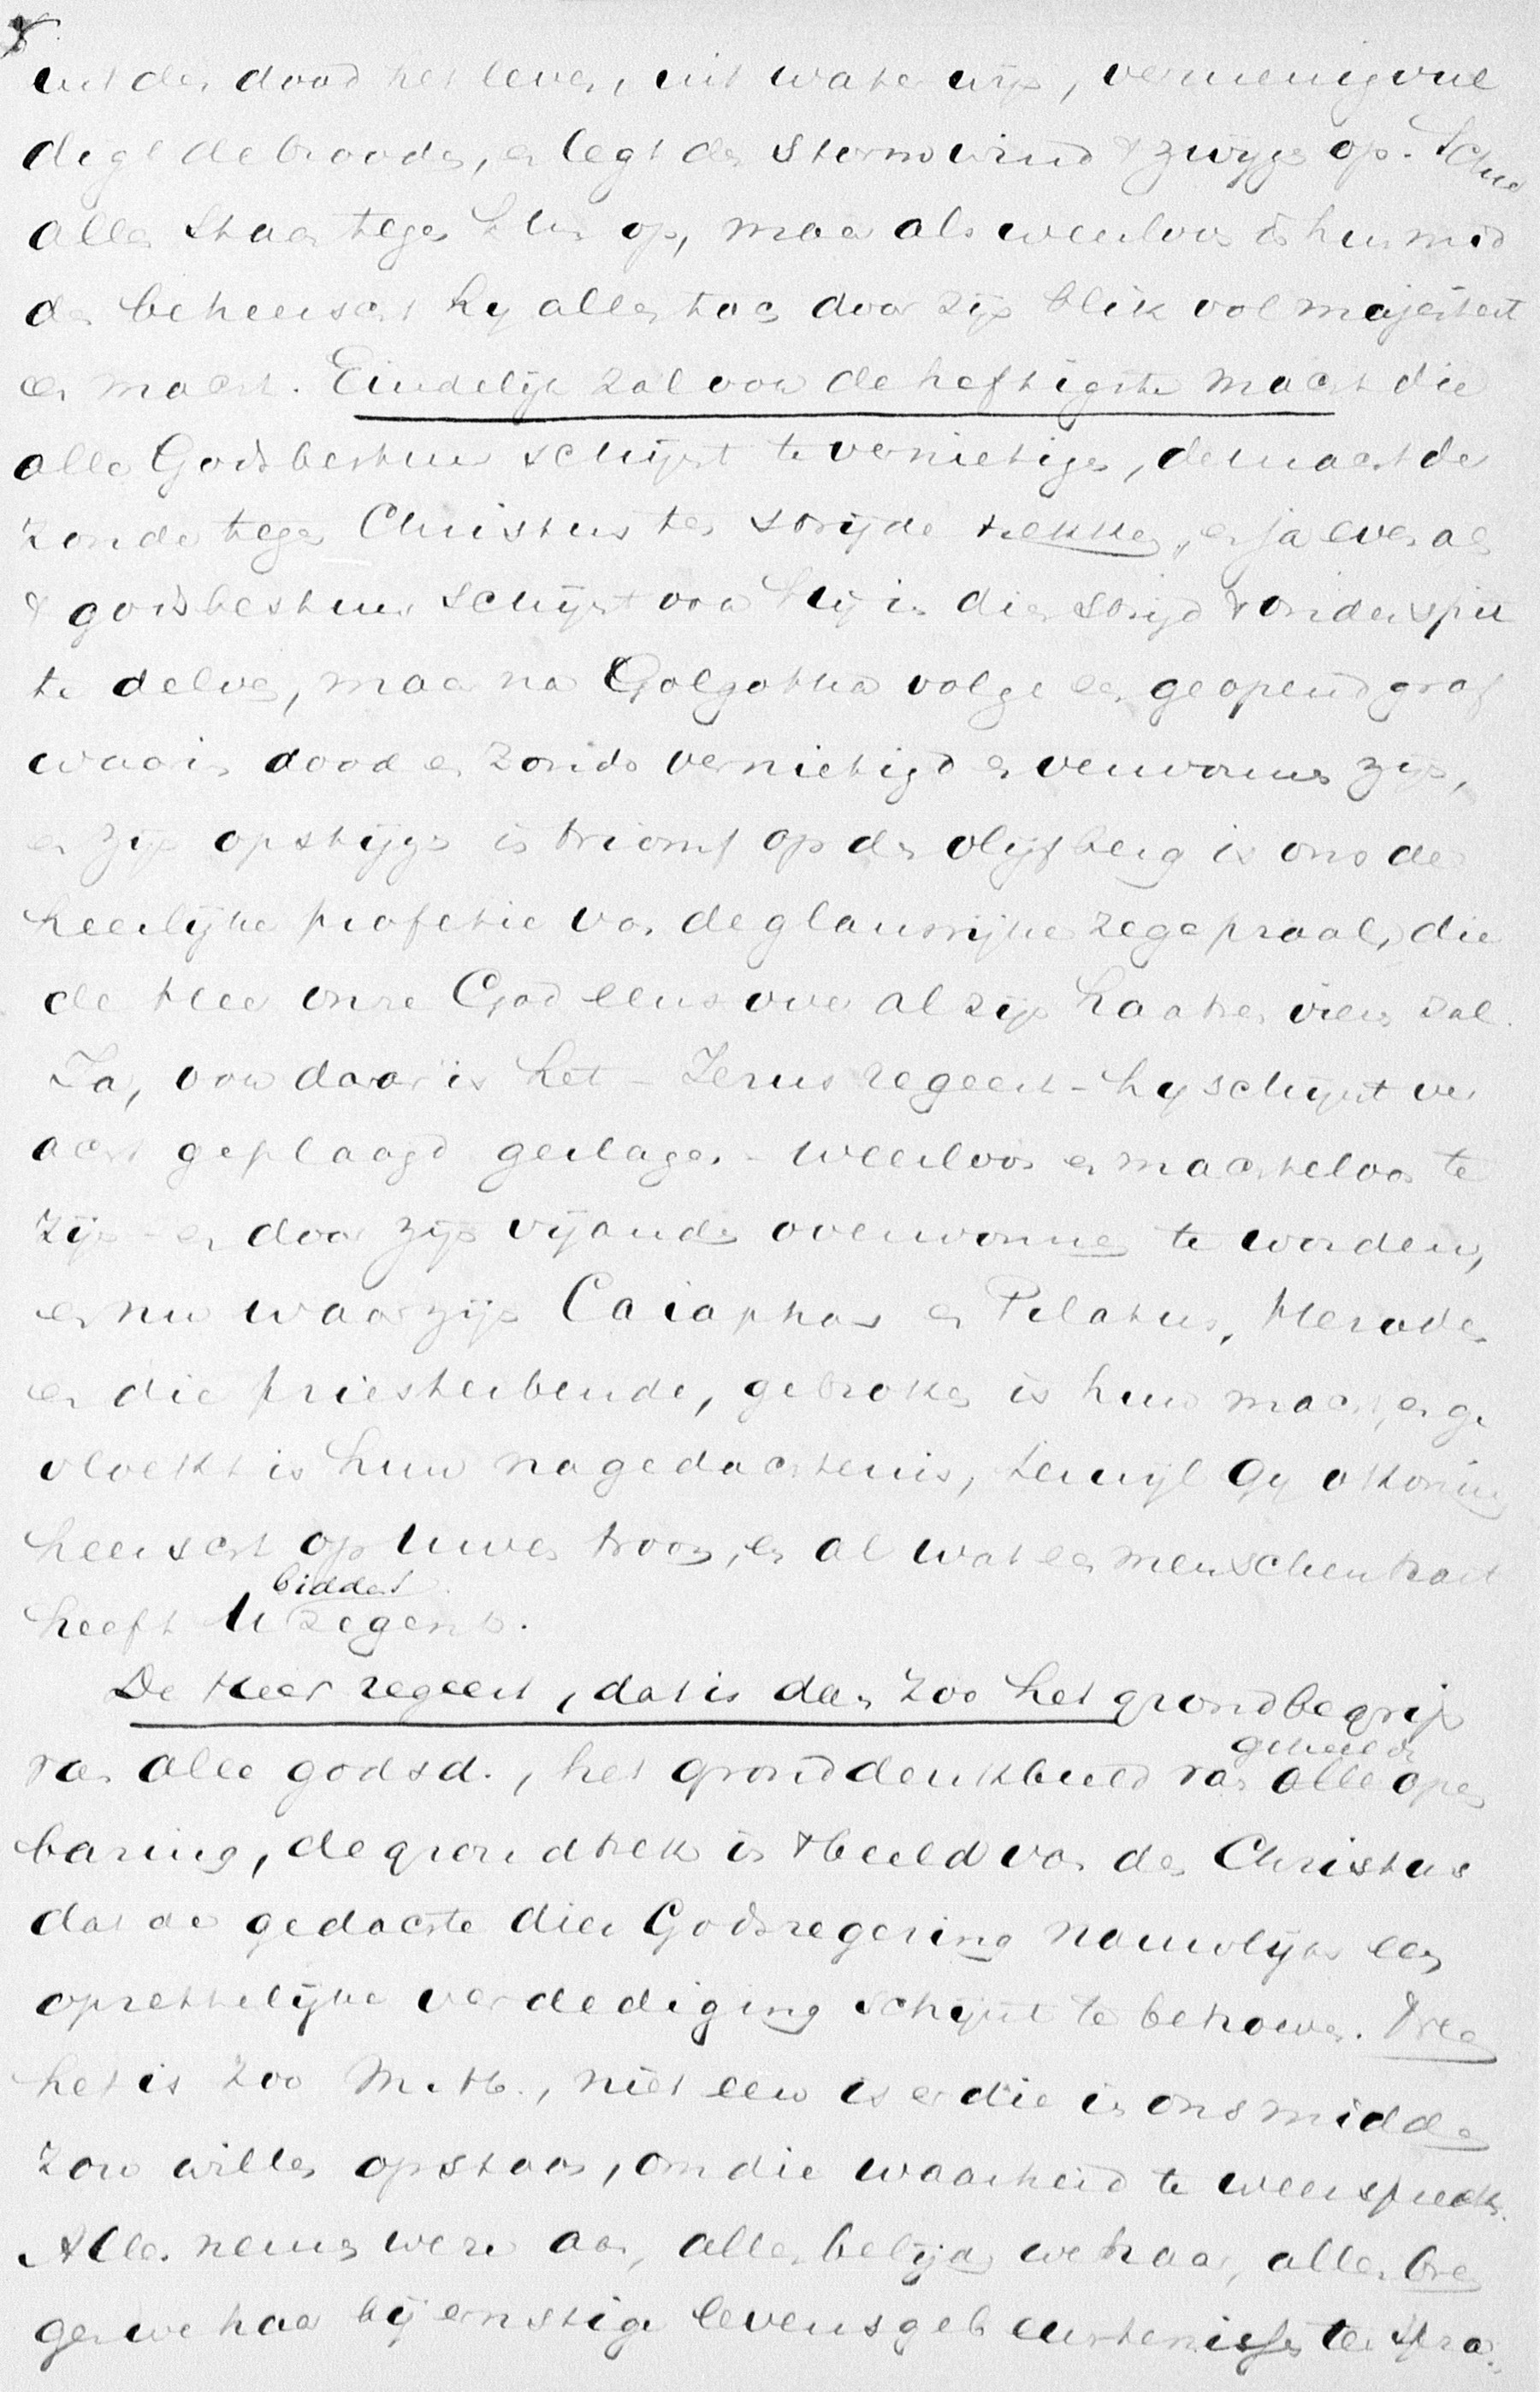 uit den dood het leven, uit water wijn, vermenigvul
digt de brooden, en legt den stormwind 't zwijgen op. Schier
alles staat tegen Hem op, maar als weerloos in hun mid
den beheerscht hy allen toch door zijn blik vol majesteit
en macht. Eindelijk zal ook de heftigste macht die
alle Godsbestuur schijnt te vernietigen, de macht der
zonde tegen Christus ten strijde trekken, en ja even als
't godsbestuur schijnt ook Hij in dien strijd 't onderspit
te delven, maar na Golgotha volge een geopend graf
waarin dood en zonde vernietigd en verwonnen zijn,
en zijn opstijgen in triomf op den olijfberg is ons de
heerlijke profetie van de glansrijke zegepraal, die
de Heer onze God eens over al zijn haaters vieren zal.
Ja, ook daar is het - Jezus regeert - hy schijnt ver
acht geplaagd geslagen - weerloos en machteloos te
zijn - en door zijn vijanden overwonnen te worden,
en nu waar zijn Caiaphas en Pilatus, Herodes
en die priesterbende, gebroken is hun macht, en ge
vloekt is hun nagedachtenis, terwijl Gy o Koning
heerscht op Uwen troon, en al wat een menschenhart
biddend
heeft U zegent.
De Heer regeert, dat is dan zoo het grondbegrip
van alle godsd., het gronddenkbeeld van alle open
baring, de grondtrek in 't beeld van den Christus
dat de gedachte dier Godsregering nauwlijks een
opzettelijke verdediging schijnt te behoeven. Nee
het is zoo M. H., niet een is er die in ons midden
zou willen opstaan, om die waarheid te weerspreken.
Allen nemen we ze aan, allen belijden we haar, allen bren
gen we haar bij ernstige levensgebeurtenissen ter spra